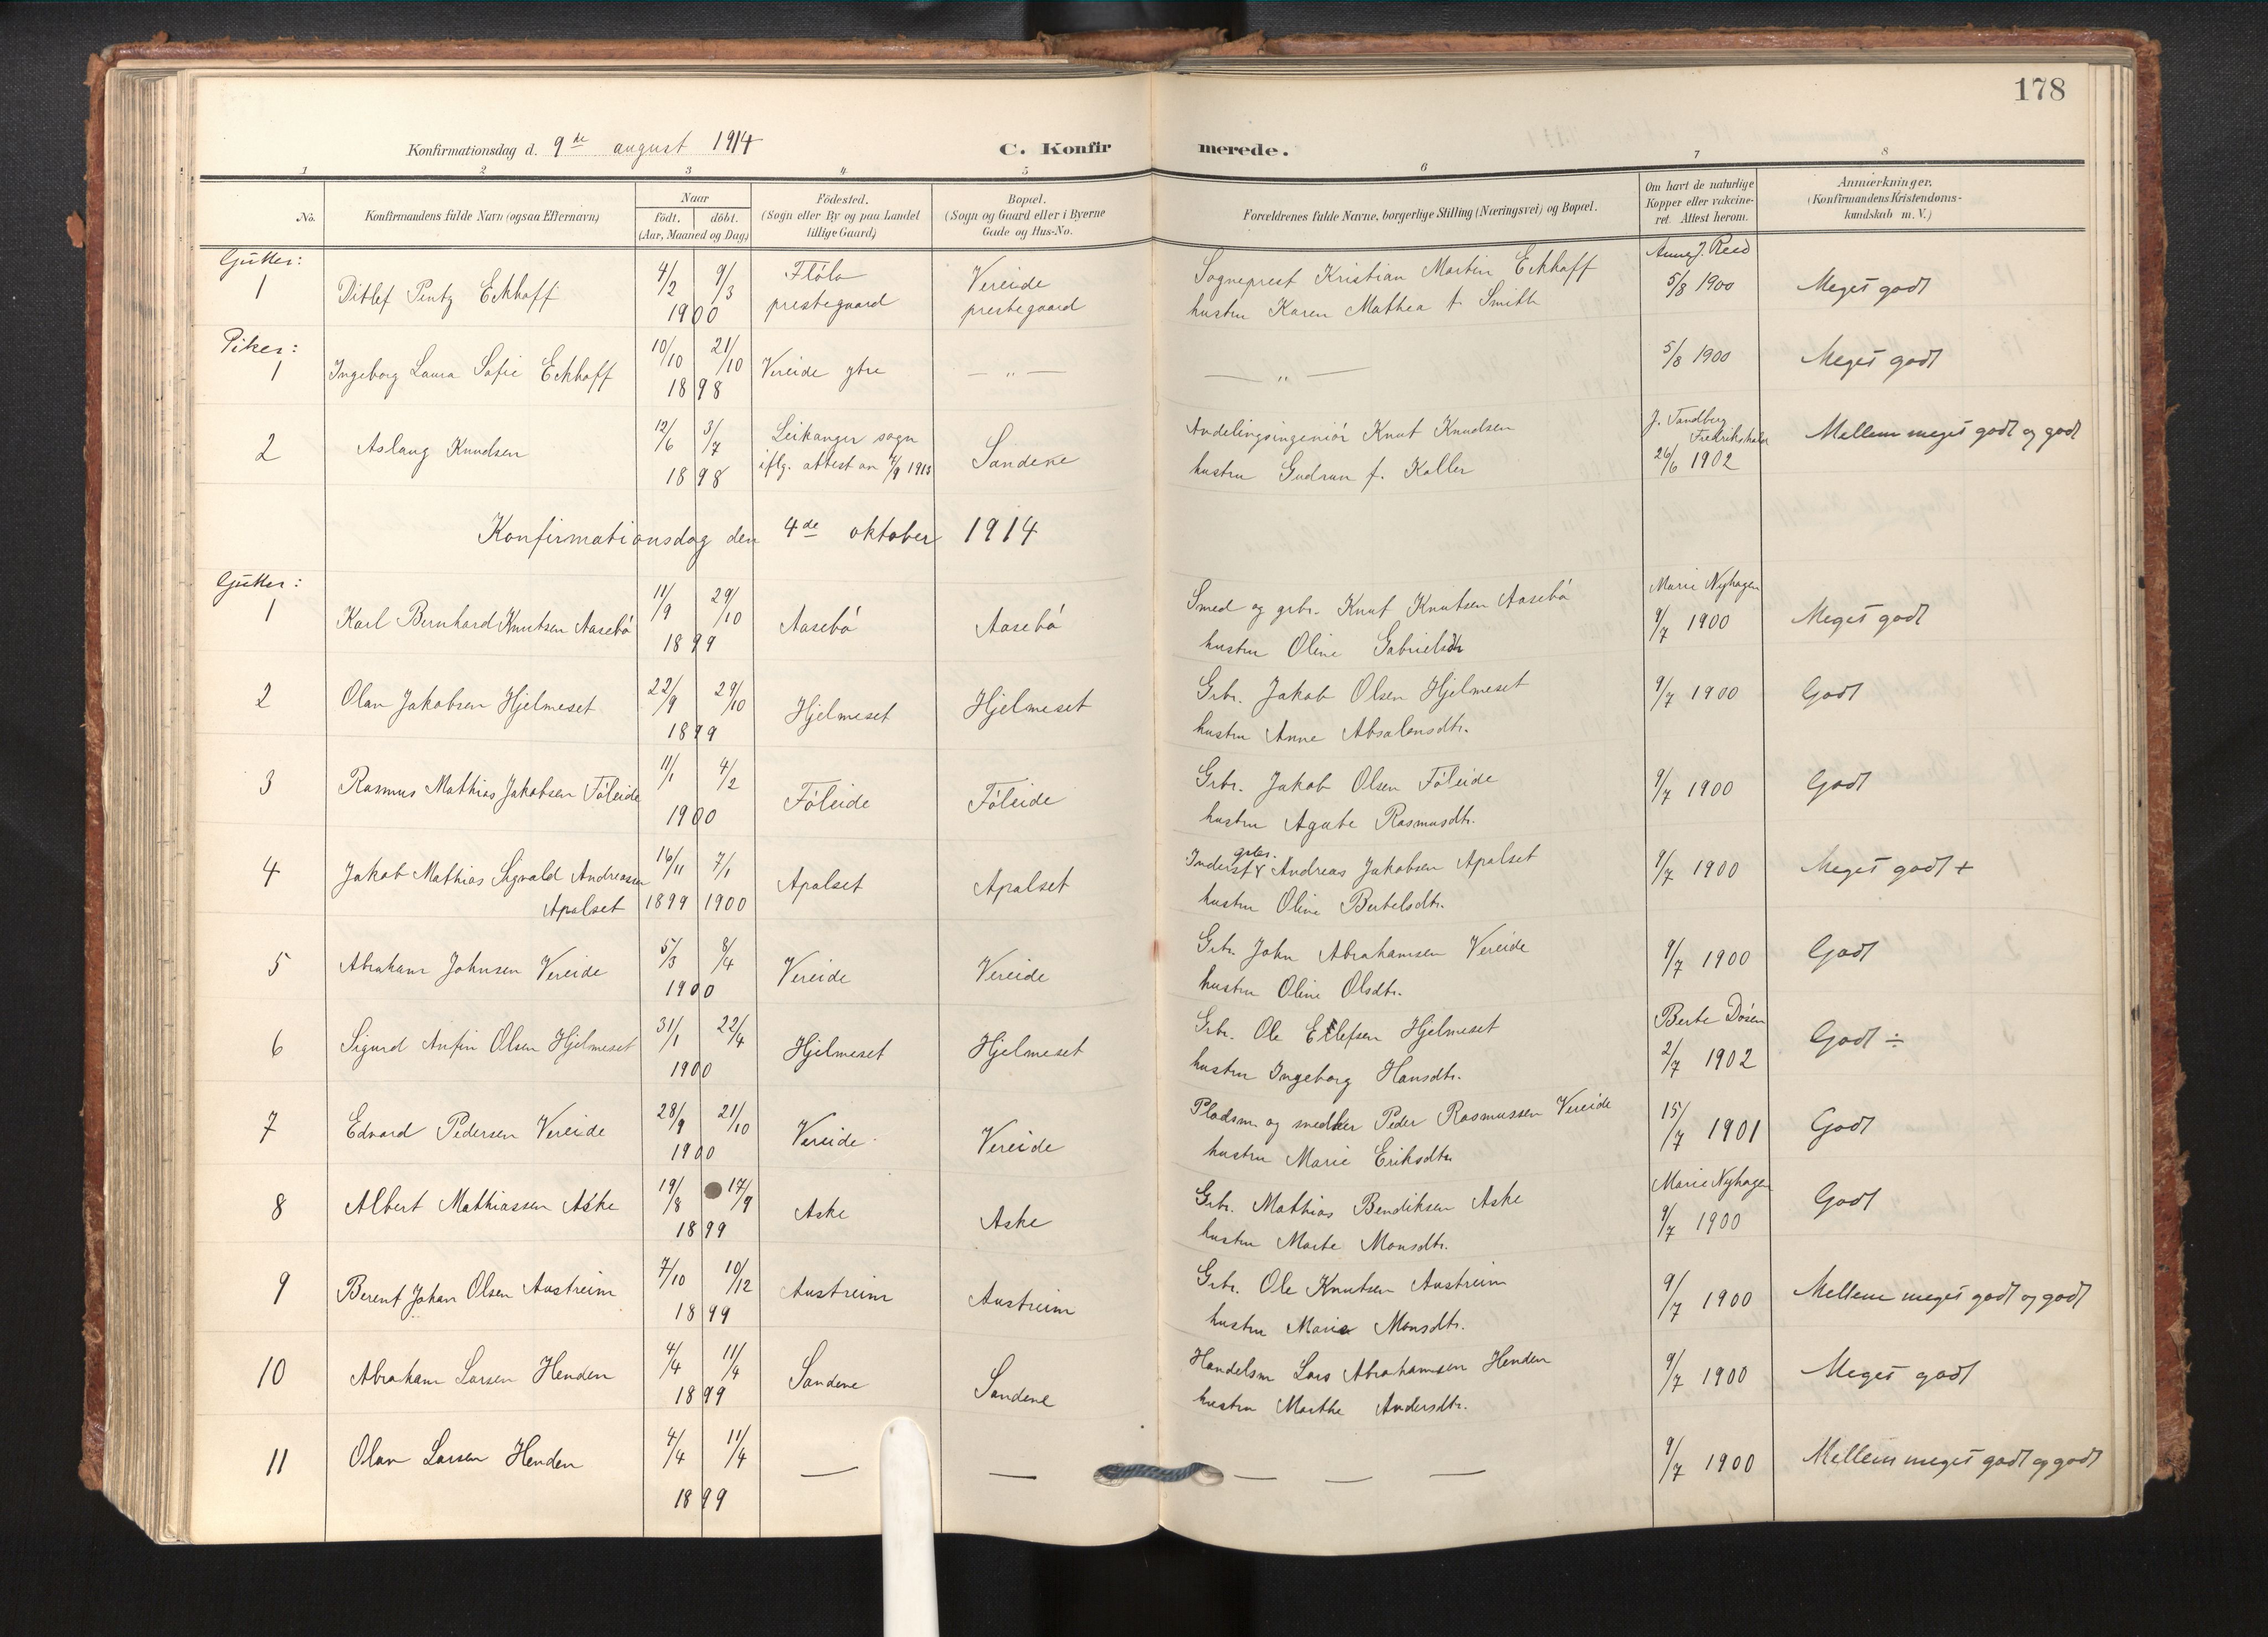 178
Konfirmationsdag d. 9de august 1914
C. Konfirmerede.
1 2 3 4 5 6 7 8
No.
Konfirmandens fulde Navn (ogsaa Efternavn)
Naar
födt. döbt.
(Aar, Maaned og Dag)
Födested.
(Sogn eller By og paa Landet
tillige Gaard)
Bopæl.
(Sogn og Gaard eller i Byerne
Gade og Hus-No.
Forældrenes fulde Navne, borgerlige Stilling (Næringsvei) og Bopæl.
Om havt de naturlige
Kopper eller vakcine-
ret. Attest herom.
Anmærkninger.
(Konfirmandens Kristendoms-
kundskab m. V.)
Gutter:
1 Ditlef Pentz Eckhoff 4/2 9/3 1900 Flöla prestegaard Vereide prestegaard
Sogneprest Kristian Martin Eckhoff
hustru Karen Mathea f. Smith
Anna J. Reed
5/8 1900 Meget godt
Piker:
1 Ingeborg Laura Sofie Eckhoff 10/10 21/10 1898 Vereide ytre — „ — — „ — 5/8 1900 Meget godt
2 Aslaug Knudsen 12/6 3/7 1898 Leikanger sogn
iflg. attest av 4/9 1913 Sandene
Avdelingsingeniör Knut Knudsen
hustru Gudrun f. Koller
J. Tandberg
Fredrikshald
26/6 1902 Mellem meget godt og godt
Konfirmationsdag den 4de oktober 1914
Gutter:
1 Karl Bernhard Knutsen Aasebö 11/9 29/10 1899 Aasebö Aasebö
Smed og grbr. Knut Knutsen Aasebö
hustru Oline Gabrielsdtr
Marie Nyhagen
9/7 1900 Meget godt
2 Olav Jakobsen Hjelmeset 22/9 29/10 1899 Hjelmeset Hjelmeset
Grbr. Jakob Olsen Hjelmeset
hustru Anne Absalonsdtr.
9/7 1900 Godt
3 Rasmus Mathias Jakobsen Föleide 11/1 4/2 1900 Föleide Föleide
Grbr. Jakob Olsen Föleide
hustru Agate Rasmusdtr.
9/7 1900 Godt
4 Jakob Mathias Sigvald Andreassen
Apalset 16/11 1899 7/1 1900 Apalset Apalset
grbr.
Inderst & Andreas Jakobsen Apalset
hustru Oline Bertelsdtr.
9/7 1900 Meget godt +
5 Abraham Johnsen Vereide 5/3 8/4 1900 Vereide Vereide
Grbr. John Abrahamsen Vereide
hustru Oline Olsdtr.
9/7 1900 Godt
6 Sigurd Anfin Olsen Hjelmeset 31/1 22/4 1900 Hjelmeset Hjelmeset
Grbr. Ole Ellefsen Hjelmeset
hustru Ingeborg Hansdtr.
Berte Dösen
2/7 1902 Godt ÷
7 Edvard Pedersen Vereide 28/9 21/10 1900 Vereide Vereide
Pladsm. og snedker Peder Rasmussen Vereide
hustru Marie Eriksdtr.
15/7 1901 Godt
8 Albert Mathiassen Aske 19/8 17/9 1899 Aske Aske
Grbr. Mathias Bendiksen Aske
hustru Marte Monsdtr.
Marie Nyhagen
9/7 1900 Godt
9 Berent Johan Olsen Austreim 7/10 10/12 1899 Austreim Austreim
Grbr. Ole Knutsen Austreim
hustru Marie Monsdtr.
9/7 1900 Mellem meget godt og godt
10 Abraham Larsen Henden 4/4 11/4 1899 Sandene Sandene
Handelsm Lars Abrahamsen Henden
hustru Marthe Andersdtr.
9/7 1900 Meget godt
11 Olav Larsen Henden 4/4 11/4 1899 — — — — — 9/7 1900 Mellem meget godt og godt